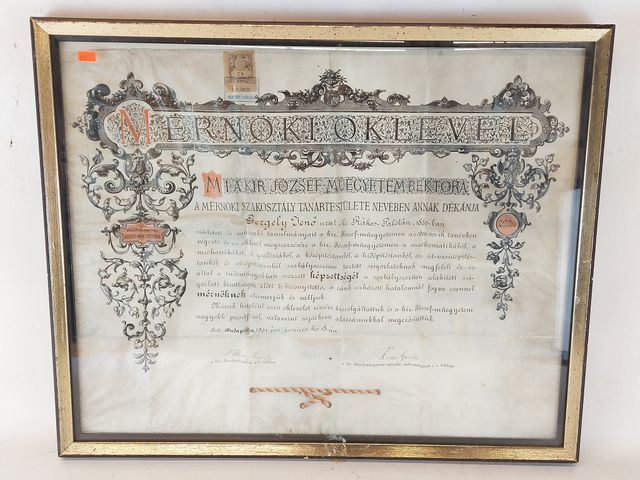 MÉRNÖKI OKLEVÉL
MI A KIR. JÓZSEF-MŰEGYETEM REKTORA
A MÉRNÖKI SZAKOSZTÁLY TANÁRTESTÜLETE NEVÉBEN ANNAK DÉKÁNJA
Gergely Jenő urat, ki Rákos-Palotán, ban
műszaki tanulmányait a kir. József-műegyetemen tanévben
végezte és az oklevél megszerzésére a kir. József-műegyetemen a mathematikából, a
mechanikából, a geodæsiából, a középítéstanból, a hídépítéstanból, az út-vasútépítés-
tanból és a vízépítéstanból szabályszerűen tartott szigorlatoknak megfelelt és ez
által a tudományokban szerzett képzettségét a szabályszerűen alakított szi-
gorlati bizottságok előtt bebizonyította, a ránk ruházott hatalomnál fogva ezennel
mérnöknek elismerjük és valljuk.
Minek hiteléül ezen oklevelet részére kiszolgáltattuk és a kir. József-műegyetem
nagyobb pecsétjével, valamint sajátkezű aláírásunkkal megerősítettük.
Kelt Budapesten, 1901. évi június hó án.